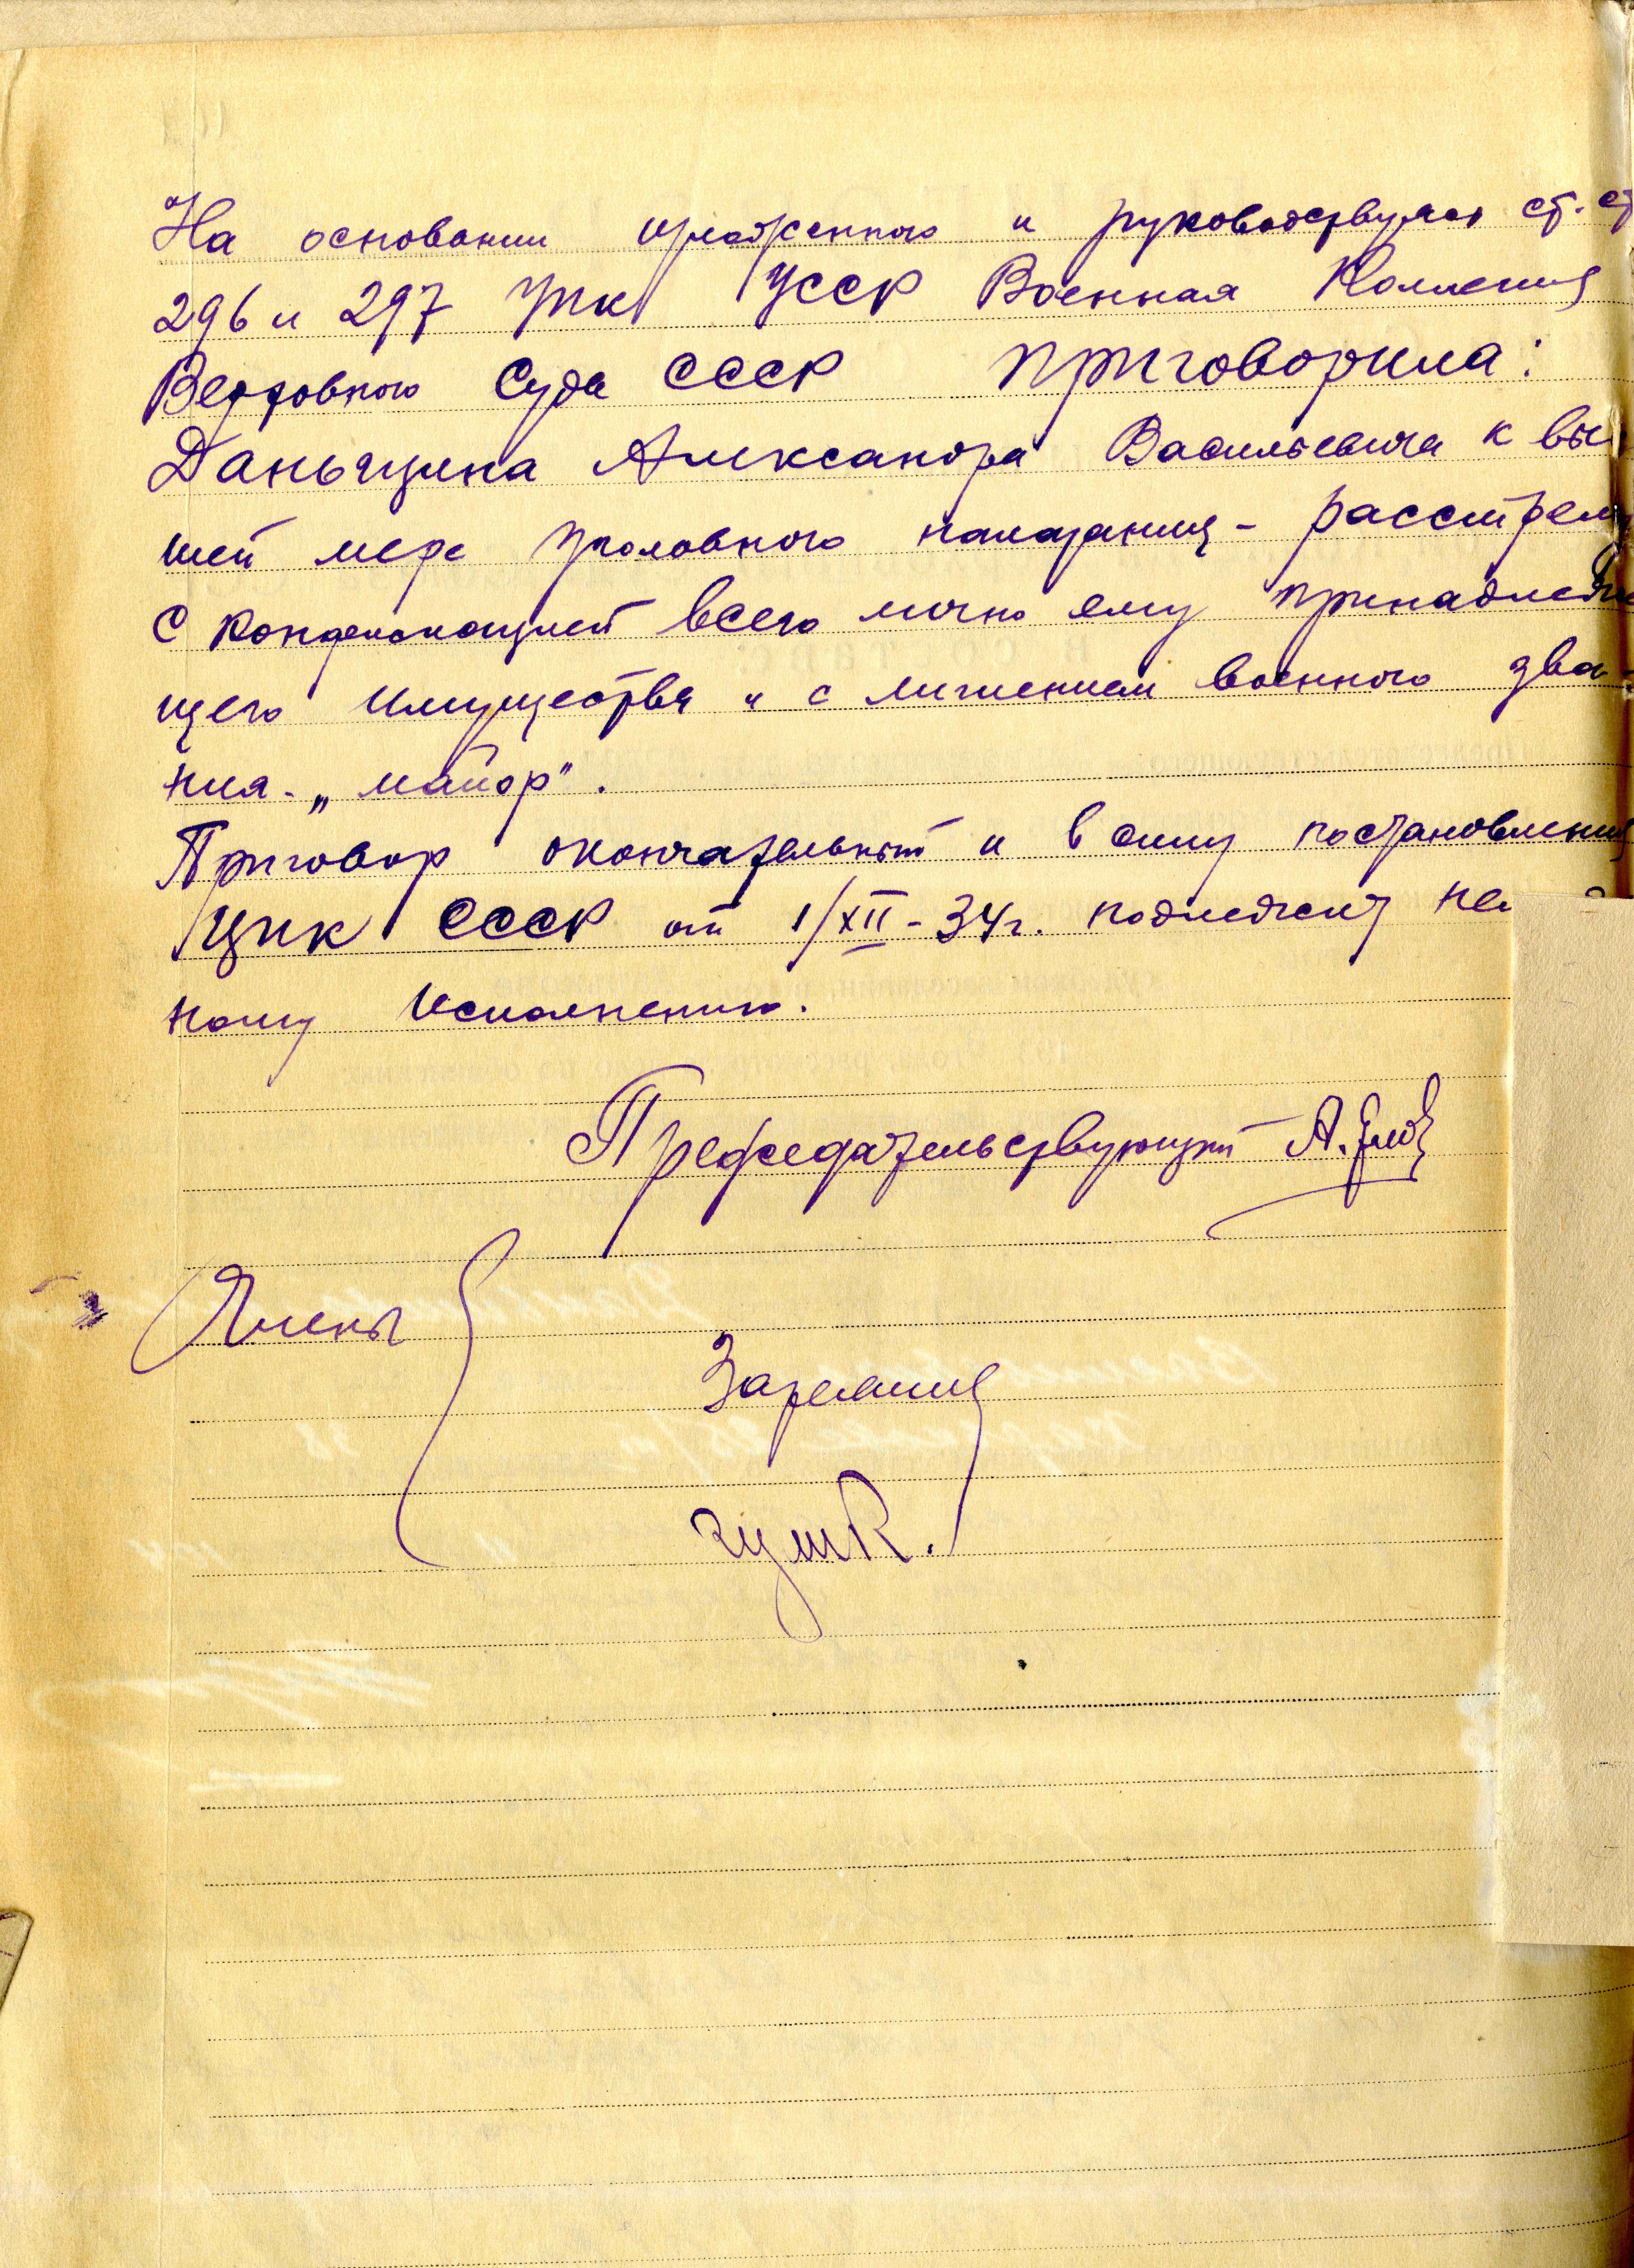 На основании изложенного и руководствуясь ст. ст
296 и 297 УПК УССР Военная Коллегия
Верховного Суда СССР приговорила:
Даньщина Александра Васильевича к выс
шей мере уголовного наказания - расстрелу
с конфискацией всего лично ему принадлежа
щего имущества и с лишением военного зва-
ния - „майор".
Приговор окончательный и в силу постановления
ЦИК СССР от 1/XII-34г. подлежит не
ному исполнению.
Председательствующий А.
Члены